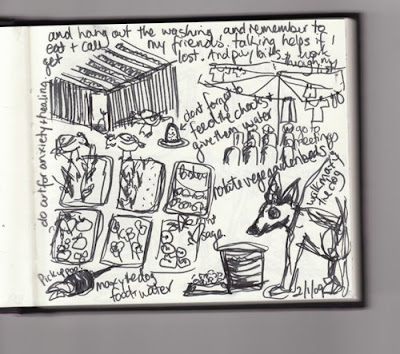 and hang out the washing and remember to
eat + call my friends. talking helps if I
get lost. And pay bills + work
through my
do art for anxiety + healing
dont forget to
feed the chooks
give them water
go to
meetings
rotate vegie garden beds
walk maxy
the dog
sage
Pick up poo
maxy the dog
food + water
2/1/09